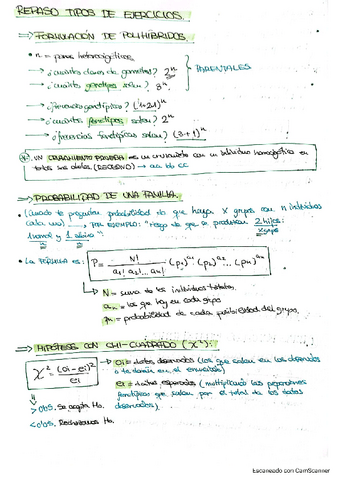 REPASO TIPOS DE EJERCICIOS.
⟹ FORMULACIÓN DE POLIHÍBRIDOS
• n = pares heterocigóticos
→ ¿cuántas clases de gametos? 2ⁿ
→ ¿cuántos genotipos salen? 3ⁿ
PARENTALES
→ ¿frecuencias genotípicas? (1+2+1)ⁿ
→ ¿cuántos fenotipos salen? 2ⁿ
→ ¿frecuencias fenotípicas salen? (3+1)ⁿ
UN CRUZAMIENTO PRUEBA es un cruzamiento con un individuo homocigótico en
todos sus alelos (RECESIVO) → aa bb cc
⟹ PROBABILIDAD DE UNA FAMILIA.
• Cuando te preguntan probabilidad de que haya X grupos con n individuos
cada uno) → POR EJEMPLO: "riesgo de que se produzcan 2 hijos:
1 normal y 1
x grupos
• LA FÓRMULA ES: P = N! / a₁! a₂! ... aₙ! (p₁)^a₁ (p₂)^a₂ ... (pₙ)^aₙ
N = suma de los individuos totales.
aₙ = los que hay en cada grupo
pₙ = probabilidad de cada posibilidad del grupo.
⟹ HIPÓTESIS CON CHI-CUADRADO (χ²).
χ² = (oi - ei)² / ei
oi = datos observados (los que salen en los observados
o te darán en el enunciado)
ei = datos esperados (multiplicando las proporciones
fenotípicas que salen por el total de los datos
observados)
> obs. Se acepta Ho.
< obs. Rechazamos Ho.
Escaneado con CamScanner